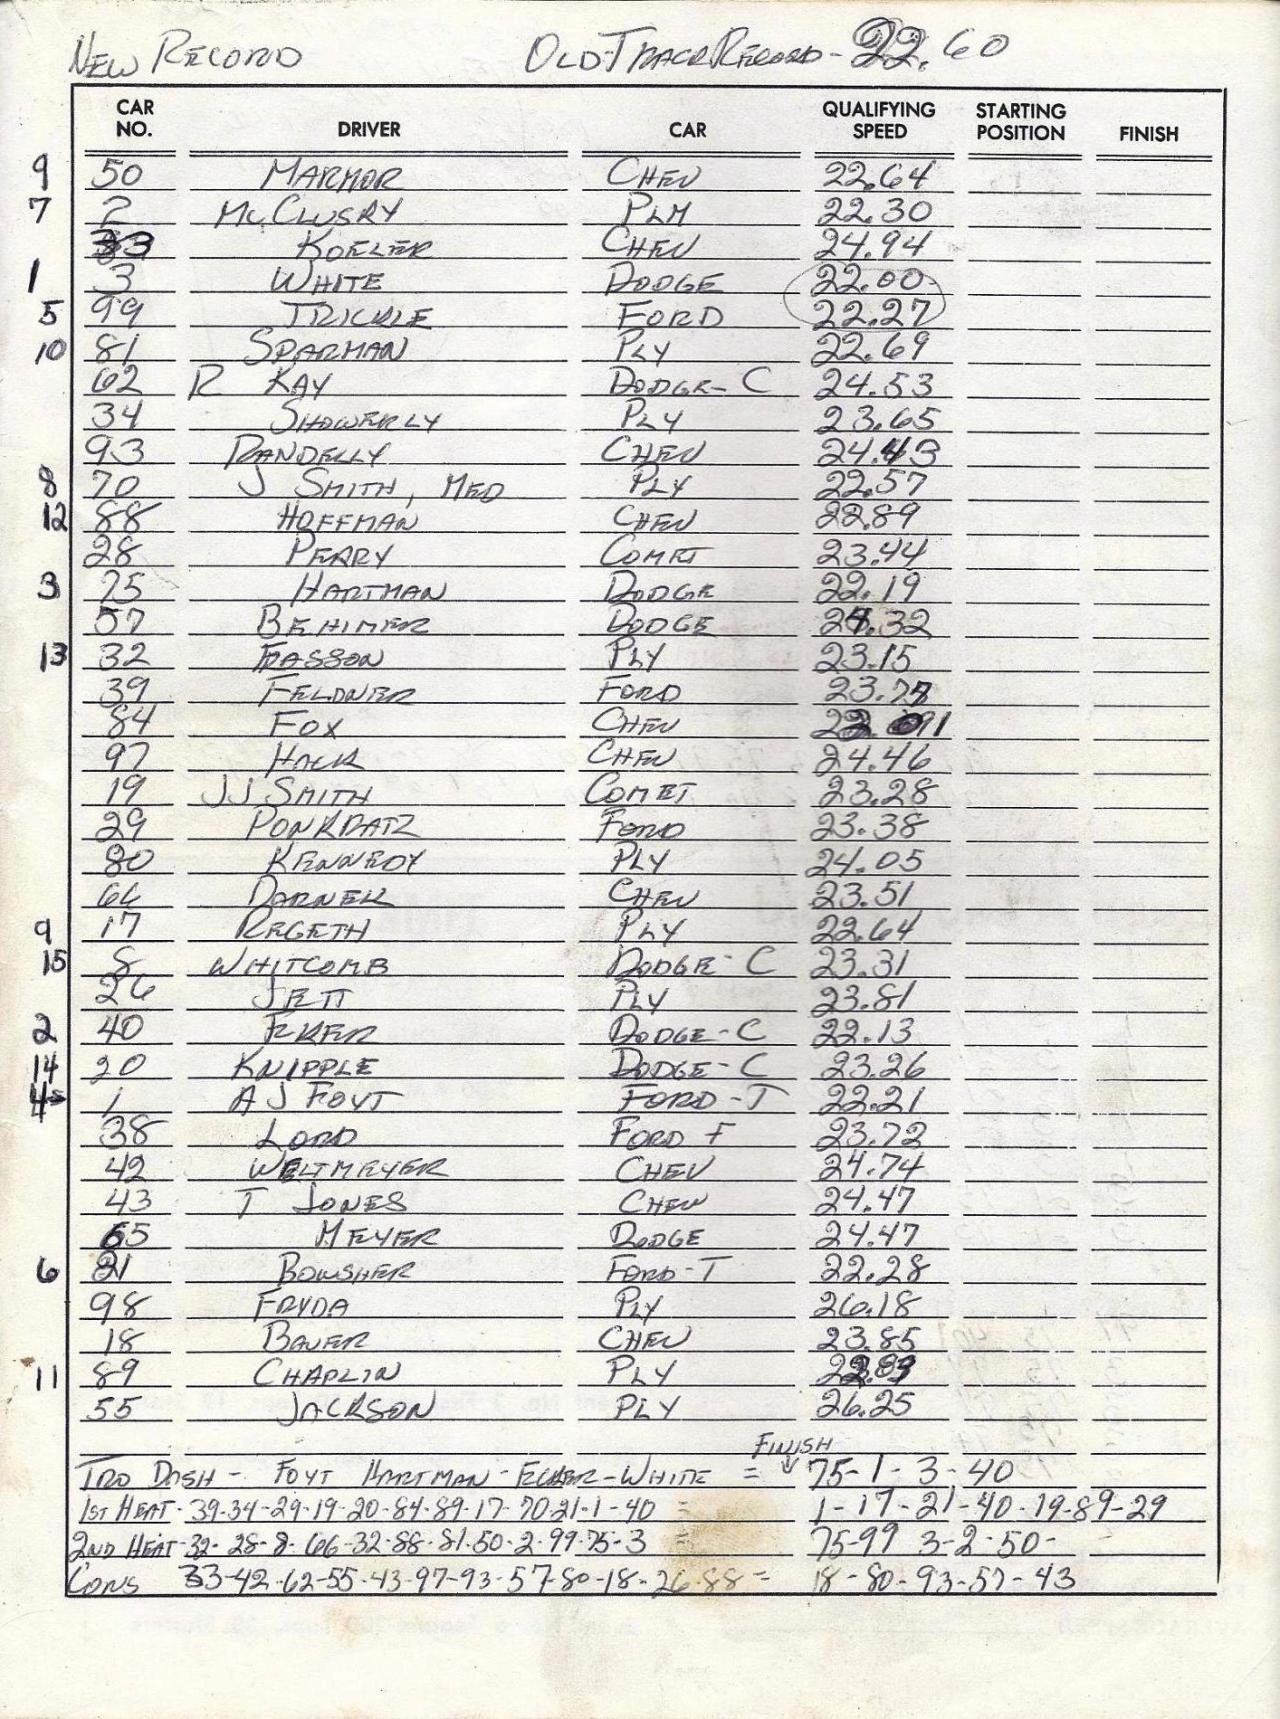 NEW RECORD OLD TRACK RECORD - 22.60
CAR NO. DRIVER CAR QUALIFYING SPEED STARTING POSITION FINISH
9 50 MARMOR CHEV 22.64
7 2 McCLUSRY PLM 22.30
33 KOELER CHEV 24.94
1 3 WHITE DODGE 22.00
5 99 TRICKLE FORD 22.27
10 81 SPARMAN PLY 22.69
62 R KAY DODGE-C 24.53
34 SHOWERLY PLY 23.65
93 RANDELLY CHEV 24.43
8 70 J SMITH, MED PLY 22.57
12 88 HOFFMAN CHEV 22.89
28 PERRY COMET 23.44
3 75 HARTMAN DODGE 22.19
57 BEHIMER DODGE 24.32
13 32 HASSON PLY 23.15
39 FELDNER FORD 23.77
84 FOX CHEV
97 HACK CHEV 24.46
19 JJ SMITH COMET 23.28
29 PONKRATZ FORD 23.38
80 KENNEDY PLY 24.05
66 DARNEK CHEV 23.51
9 17 REGETH PLY 22.64
15 8 WHITCOMB DODGE-C 23.31
26 JETT PLY 23.81
2 40 EKER DODGE-C 22.13
14 20 KNIPPLE DODGE-C 23.26
4 1 AJ FOYT FORD-T 22.21
38 LORD FORD F 23.72
42 WELTMEYER CHEV 24.74
43 T JONES CHEV 24.47
65 MEYER DODGE 24.47
6 21 BOWSHER FORD-T 22.28
98 FRYDA PLY 26.18
18 BAUER CHEV 23.85
11 89 CHAPLIN PLY
55 JACKSON PLY 26.25
FINISH
TRO DASH - FOYT HARTMAN - ECKER - WHITE = 75-1-3-40
1ST HEAT - 39-34-29-19-20-84-89-17-70-21-1-40 = 1-17-21-40-19-89-29
2ND HEAT - 32-28-8-66-32-88-81-50-2-99-75-3 = 75-99 3-2-50-
CONS 33-42-62-55-43-97-93-57-80-18-26-88 = 18-80-93-57-43